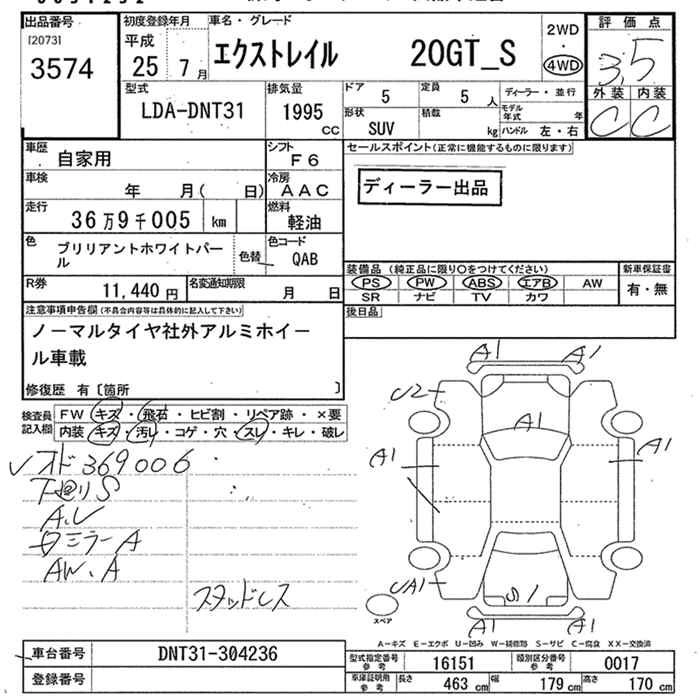 出品番号
[2073]
3574
初度登録年月
平成
25 7月
車名・グレード
エクストレイル 20GT_S
2WD
・
4WD
評価点
3.5
外装 内装
C C
型式
LDA-DNT31
排気量
1995
CC
ドア 5
定員 5 人
ディーラー・並行
形状
SUV
積載
kg
モデル年式 年
ハンドル 左・右
車歴
自家用
シフト
F6
セールスポイント(正常に機能するものに限ります)
ディーラー出品
車検
年 月( 日)
冷房
AAC
走行
36万9千005 km
燃料
軽油
色
ブリリアントホワイトパー
ル
色替
色コード
QAB
装備品 (純正品に限り○をつけてください)
新車保証書
PS PW ABS エアB AW
有・無
SR ナビ TV カワ
R券
11,440円
名変通知期限
月 日
後日品
注意事項申告欄(不具合内容等は具体的に記入して下さい)
ノーマルタイヤ社外アルミホイー
ル車載
修復歴 有〔箇所 〕
検査員
記入欄
FW キズ・飛石・ヒビ割・リペア跡・×要
内装・キズ・汚れ・コゲ・穴・スレ・キレ・破レ
369006
下廻りS
A.U
ミラーA
AW.A
スタッドレス
A1 A1
U2
A1
A1 A1
UA1
S1
A1 A1
スペア
A-キズ E-エクボ U-凹み W-補修跡 S-サビ C-腐食 XX-交換済
車台番号
DNT31-304236
登録番号
型式指定番号
参考
16151
類別区分番号
参考
0017
車庫証明用
参考
長さ 463 cm
幅 179 cm
高さ 170 cm